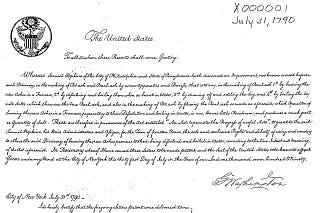 X000001
July 31, 1790
The United States
To all to whom these Presents shall come, Greeting.
Whereas Samuel Hopkins of the City of Philadelphia and State of Pensylvania hath discovered an Improvement, not known or used before
such Discovery, in the making of Pot ash and Pearl ash by a new Apparatus and Process; that is to say, in the making of Pearl ash 1st by burning the
raw Ashes in a Furnace, 2d by dissolving and boiling them when so burnt in Water, 3d by drawing off and settling the ley, and 4th by boiling the ley
into Salts which then are the true Pearl ash; and also in the making of Pot ash by fluxing the Pearl ash so made as aforesaid; which Operation of
burning the raw Ashes in a Furnace, preparatory to their Dissolution and boiling in Water, is new, leaves little Residuum; and produces a much greater
Quantity of Salt: These are therefore in pursuance of the Act, entitled "An Act to promote the Progress of useful Arts", to grant to the said
Samuel Hopkins, his Heirs, Administrators and Assigns, for the Term of fourteen Years, the sole and exclusive Right and Liberty of using, and vending
to others the said Discovery, of burning the raw Ashes previous to their being dissolved and boiled in Water,
In Testimony whereof I have caused these Letters to be made patent, and the Seal of the United States to be hereunto affixed
Given under my Hand at the City of New York this thirty first Day of July in the Year of our Lord one thousand seven hundred & Ninety.
G Washington
City of New York July 31st 1790.
I do hereby certify that the foregoing Letters patent were delivered to me